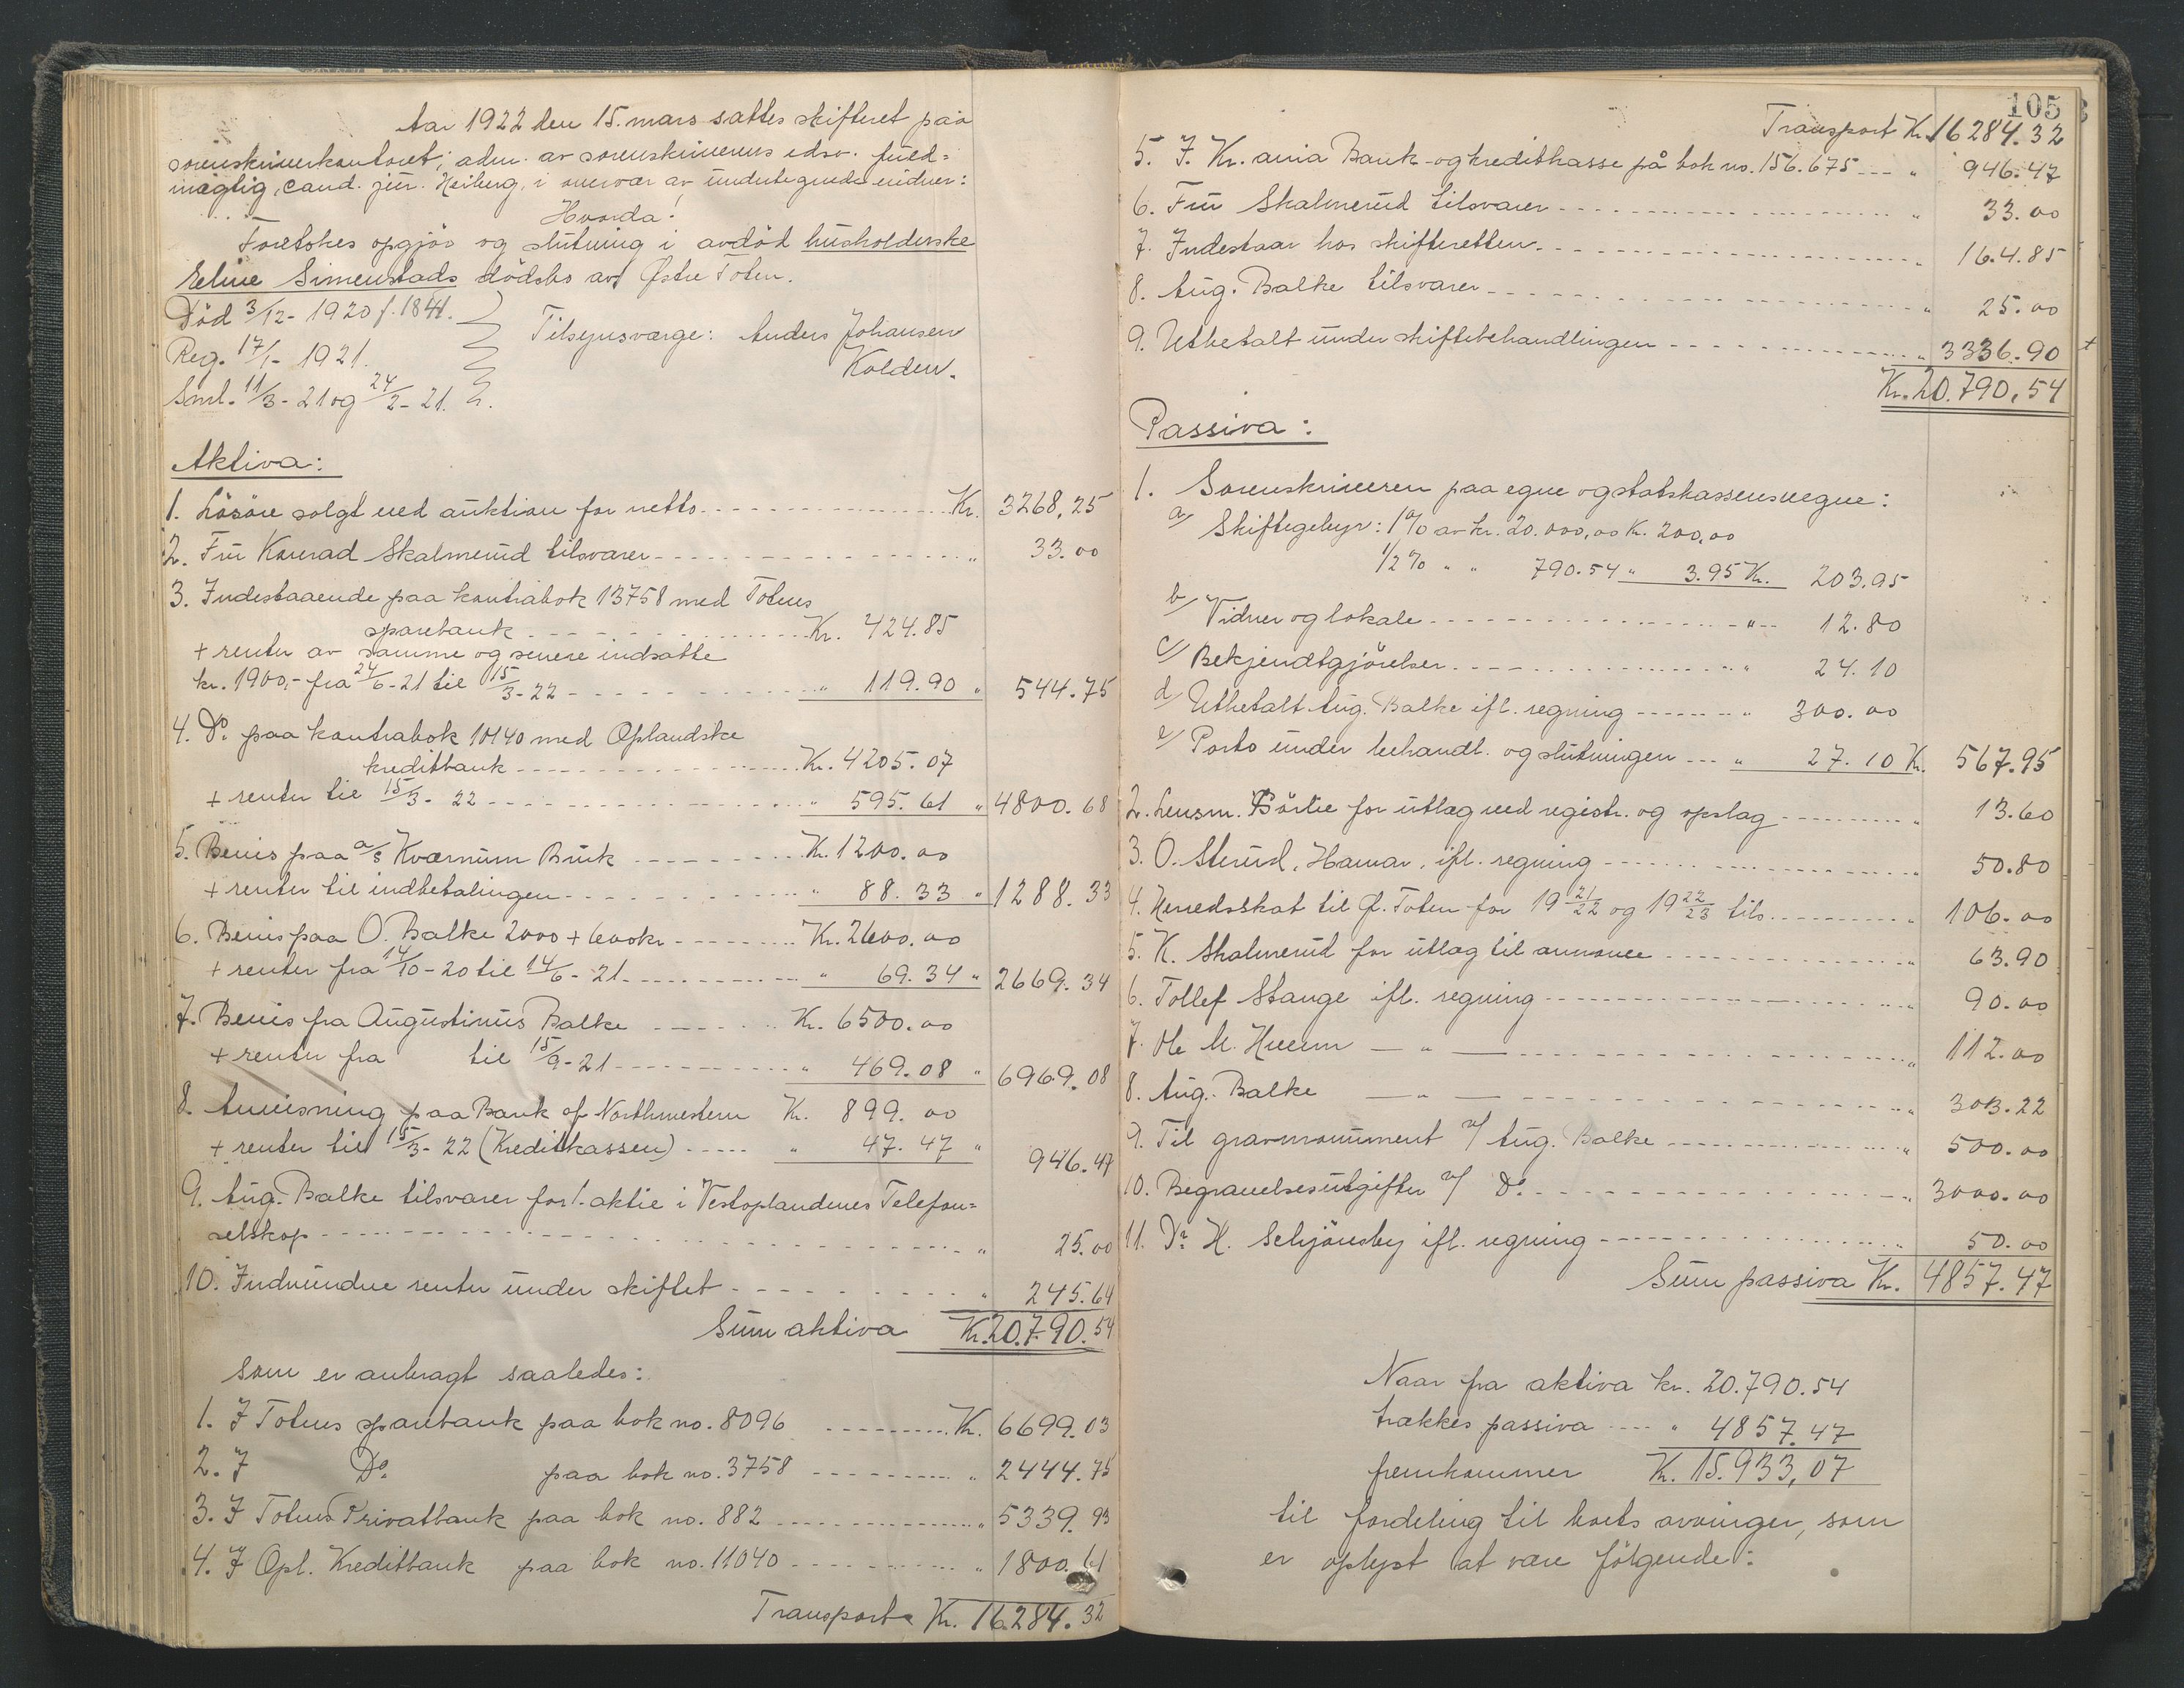 Aar 1922 den 15. mars sattes skifteret paa
sorenskriverkontoret; adm. av sorenskriverens edsv. fuld=
mægtig, cand. jur. Heiberg, i overvær av undertegnede vidner:
Hvorda!
Foretokes opgjör og slutning i avdöd husholderske
Eline Simenstads dödsbo av Østre Toten.
Död 3/12- 1920 f. 1841.
Reg. 17/1- 1921.
Saml. 11/3- 21 og 24/2- 21.
Tilsynsværge: Anders Johansen
Kolden.
Aktiva:
1. Lösöre solgt ved auktion for netto Kr. 3268,25
2. Fru Konrad Skalmerud tilsvarer " 33.00
3. Indestaaende paa kontrabok 13758 med Totens
sparebank Kr. 424.85
+ renter av samme og senere indsatte
kr. 1900,- fra 24/6-21 til 15/3-22 " 119.90 " 544.75
4. Do. paa kontrabok 10140 med Oplandske
kreditbank Kr. 4205.07
+ renter til 15/3- 22 " 595.61 " 4800.68
5. Bevis paa a/s Kværnum Bruk Kr. 1200.00
+ renter til indbetalingen " 88.33 " 1288.33
6. Bevis paa O. Balke 2000 + 600 kr. Kr. 2600.00
+ renter fra 14/10-20 til 14/6-21 " 69.34 " 2669.34
7. Bevis fra Augustinus Balke Kr. 6500.00
+ renter fra til 15/9-21 " 469.08 " 6969.08
8. Anvisning paa Bank of Northwestern Kr. 899.00
+ renter til 15/3- 22 (Kreditkassen) " 47.47 " 946.47
9. Aug. Balke tilsvarer for 1 aktie i Vestoplandenes Telefon=
selskap " 25.00
10. Indvundne renter under skiftet " 245.64
Sum aktiva Kr. 20.790.54
Som er anbragt saaledes:
1. I Totens sparebank paa bok no. 8096 Kr. 6699.03
2. I Do. paa bok no. 3758 " 2444.75
3. I Totens Privatbank paa bok no. 882 " 5339.93
4. I Opl. Kreditbank paa bok no. 11040 " 1800.61
Transport Kr. 16284.32
105
Transport Kr. 16284.32
5. I Kr.ania Bank- og kreditkasse på bok no. 156.675 " 946.47
6. Fru Skalmerud tilsvarer " 33.00
7. Indestaar hos skifteretten " 164.85
8. Aug. Balke tilsvarer " 25.00
9. Utbetalt under skiftebehandlingen " 3336.90 +
Kr. 20.790,54
Passiva:
1. Sorenskriveren paa egne og statskassens vegne:
a/ Skiftegebyr: 1% av kr. 20.000,00 Kr. 200,00
1/2% " " 790.54 " 3.95 Kr. 203.95
b/ Vidner og lokale " 12.80
c/ Bekjendtgjörelser " 24.10
d/ Utbetalt Aug. Balke ifl. regning " 300.00
e/ Porto under behandl. og slutningen " 27.10 Kr. 567.95
2. Lensm. Börlie for utlæg ved registr. og opslag " 13.60
3. O. Sterud, Hamar, ifl. regning " 50.80
4. Herredsskat til Ø. Toten for 19 21/22 og 19 22/23 tils. " 106.00
5. K. Skalmerud for utlag til annonce " 63.90
6. Tollef Stange ifl. regning " 90.00
7. Ole M. Hveem — " — " 112.00
8. Aug. Balke — " — " 303.22
9. Til gravmonument v/ Aug. Balke " 500.00
10. Begravelsesutgifter v/ Do. " 3000.00
11. Dr. H. Schjönsby ifl. regning " 50.00
Sum passiva Kr. 4857.47
Naar fra aktiva kr. 20.790.54
trækkes passiva " 4857.47
fremkommer Kr. 15.933,07
til fordeling til boets arvinger, som
er oplyst at være följende: